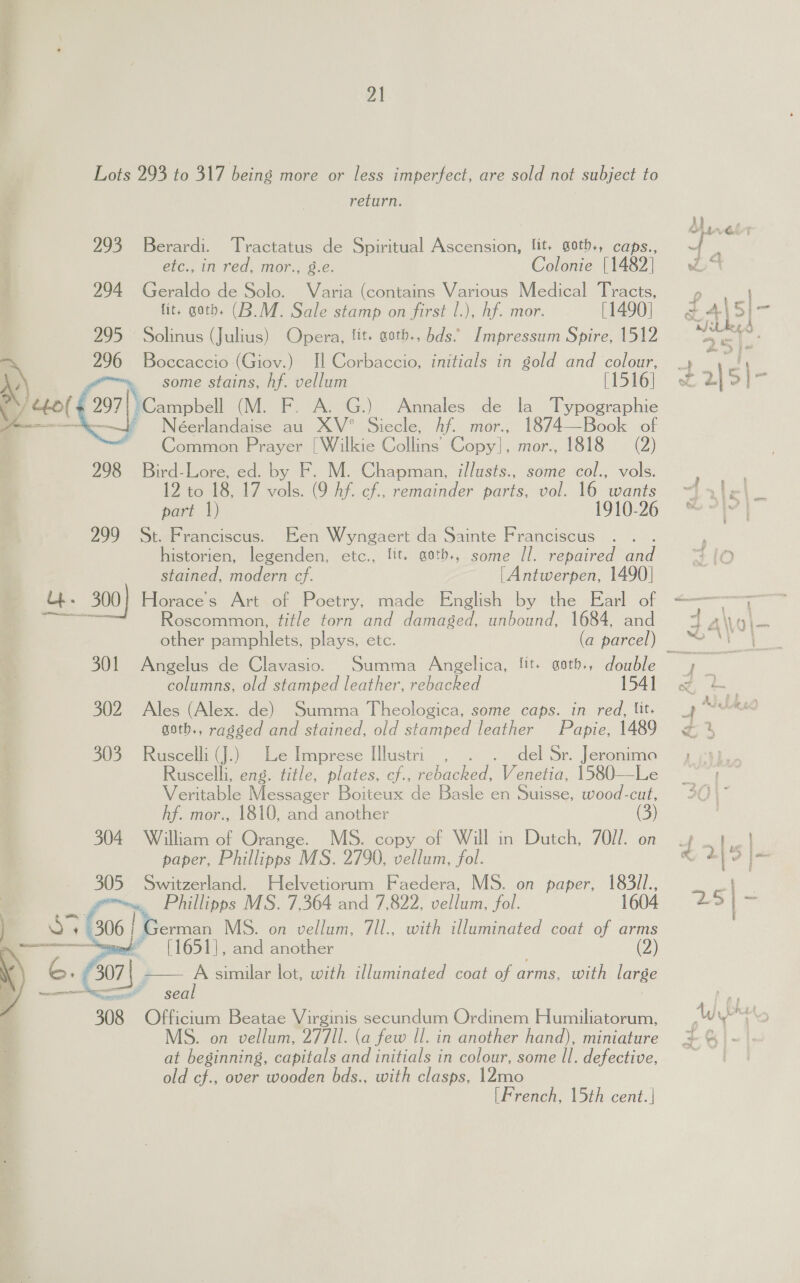 21
Lots 293 to 317 being more or less imperfect, are sold not subject to
return.
293 Berardi. Tractatus de Spiritual Ascension, lit. goth., caps.,
etc., in red, mor., g.e. Colonie [1482]
294 Geraldo de Solo. Varia (contains Various Medical Tracts,
lit. goth. (B.M. Sale stamp on first l.), hf. mor. [1490]
£ 4|5|-
295 Solinus (Julius) Opera, lit. goth., bds. Impressum Spire, 1512
296 Boccaccio (Giov.) Il Corbaccio, initials in gold and colour,
some stains, hf. vellum [1516]
£ 2|5|-
297 Campbell (M. F. A. G.) Annales de la Typographie
Néerlandaise au XVe Siecle, hf. mor., 1874—Book of
Common Prayer [Wilkie Collins' Copy], mor., 1818 (2)
298 Bird-Lore, ed. by F. M. Chapman, illusts., some col., vols.
12 to 18, 17 vols. (9 hf. cf., remainder parts, vol. 16 wants
part 1) 1910-26
299 St. Franciscus. Een Wyngaert da Sainte Franciscus . . .
historien, legenden, etc., lit. goth., some ll. repaired and
stained, modern cf. [Antwerpen, 1490]
4. 300 Horace's Art of Poetry, made English by the Earl of
Roscommon, title torn and damaged, unbound, 1684, and
other pamphlets, plays, etc. (a parcel)
301 Angelus de Clavasio. Summa Angelica, lit. goth., double
columns, old stamped leather, rebacked 1541
302 Ales (Alex. de) Summa Theologica, some caps. in red, lit.
goth., ragged and stained, old stamped leather Papie, 1489
303 Ruscelli (J.) Le Imprese Illustri , . . . del Sr. Jeronimo
Ruscelli, eng. title, plates, cf., rebacked, Venetia, 1580—Le
Veritable Messager Boiteux de Basle en Suisse, wood-cut,
hf. mor., 1810, and another (3)
304 William of Orange. MS. copy of Will in Dutch, 70ll. on
paper, Phillipps MS. 2790, vellum, fol.
305 Switzerland. Helvetiorum Faedera, MS. on paper, 183ll.,
Phillipps MS. 7,364 and 7,822, vellum, fol. 1604
25|-
306 German MS. on vellum, 7ll., with illuminated coat of arms
[1651], and another (2)
6. 307 —— A similar lot, with illuminated coat of arms, with large
seal
308 Officium Beatae Virginis secundum Ordinem Humiliatorum,
MS. on vellum, 277ll. (a few ll. in another hand), miniature
at beginning, capitals and initials in colour, some ll. defective,
old cf., over wooden bds., with clasps, 12mo
[French, 15th cent.]